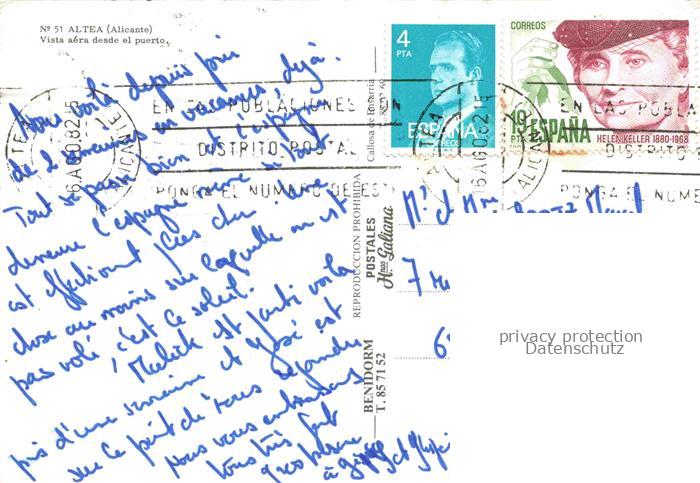 Nº 51 ALTEA (Alicante)
Vista aéra desde el puerto.
Nous voilà depuis près
de 2 semaines en vacances, déjà.
Tout se passe bien et l'espagne
demeure l'espagne même si tout
est effectivement plus cher. Une
chose au moins sur laquelle on est
pas volé, c'est le soleil.
Malik est parti voilà
près d'une semaine et José est
sur le point de nous rejoindre
Nous vous embrassons
tous très fort
gros bisous
à
et
REPRODUCCION PROHIBIDA
Callosa de Ensarria
POSTALES
Hnos Galiana
BENIDORM
T. 85 71 52
4
PTA
ESPAÑA
CORREOS
CORREOS
19
PTA
ESPAÑA
HELEN KELLER 1880-1968
ALTEA
16 AGO. 82
ALICANTE
EN LAS POBLACIONES CON
DISTRITO POSTAL
PONGA EL NUMERO DE ESTE
ALTEA
16 AGO. 82
ALICANTE
EN LAS POBLA
DISTRITO
PONGA EL NUME
Mr et Mme
7
6
privacy protection
Datenschutz